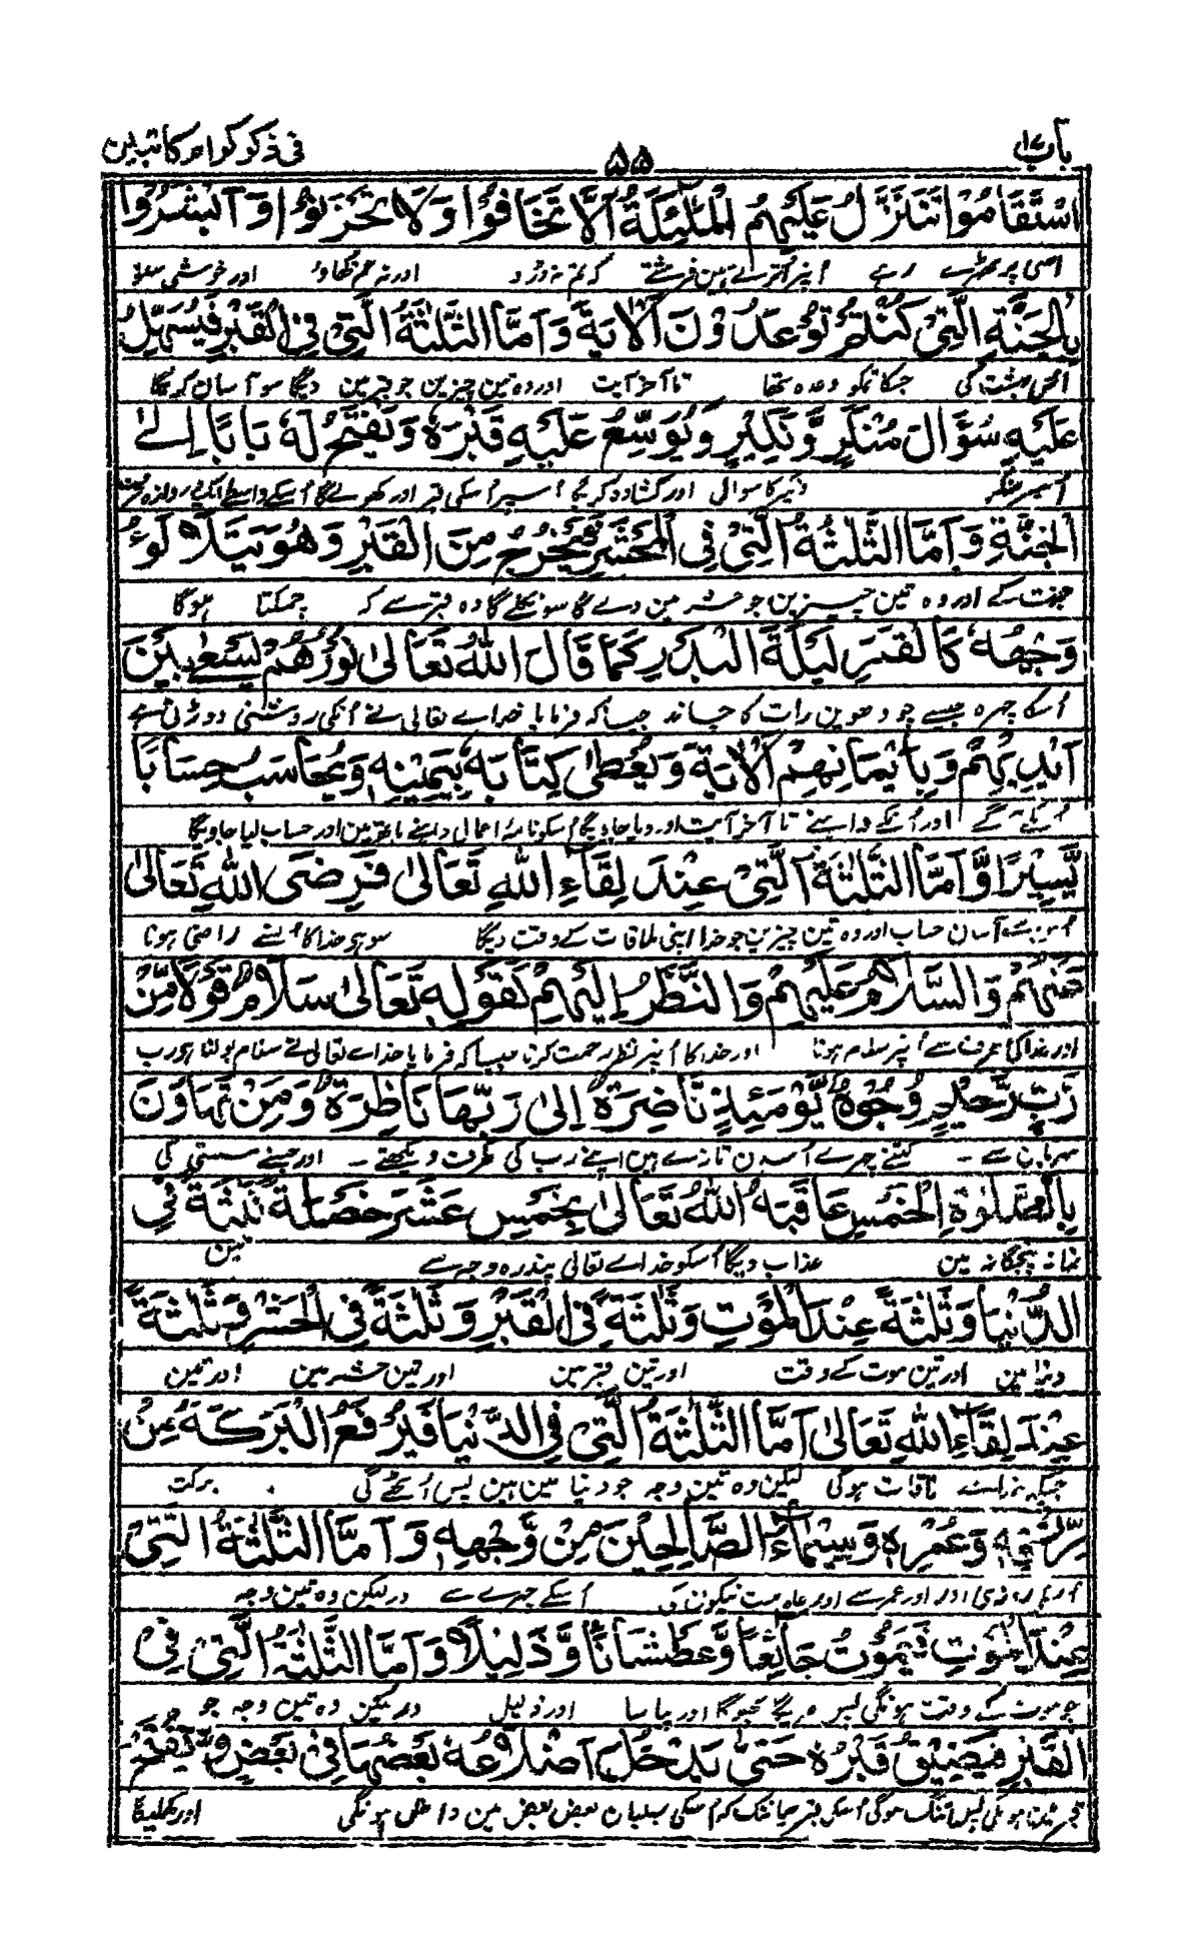 باب ۱۷
۵۵
فی ذکر کواما کاتبین
اسْتَقَامُوْا تَتَنَزَّلُ عَلَيْهِمُ الْمَلٰئِكَةُ اَلَّا تَخَافُوْا وَلَا تَحْزَنُوْا وَاَبْشِرُوْا
اسی پر ٹھرے رہے اُنپر اُترتے ہین فرشتے کہ تم نہ ڈرو اور نہ غم کھاؤ اور خوشی سنو
بِالْجَنَّةِ الَّتِيْ كُنْتُمْ تُوْعَدُوْنَ الْاٰيَةَ وَاَمَّا الثَّلٰثَةُ الَّتِيْ فِي الْقَبْرِ فَيُسَهِّلُ
اُس بہشت کی جسکا تمکو وعدہ تھا تا آخر آیت اور وہ تین چیزین جو قبر مین دیگا سو آسان کریگا
عَلَيْهِ سُؤَالَ مُنْكَرٍ وَّنَكِيْرٍ وَيُوَسِّعُ عَلَيْهِ قَبْرَهٗ وَيَفْتَحُ لَهٗ بَابًا اِلَى
اُسپر منکر ونکیر کا سوال اور کشادہ کریگا اُسپر اُسکی قبر اور کھولے گا اُسکے واسطے ایک دروازہ
الْجَنَّةِ وَاَمَّا الثَّلٰثَةُ الَّتِيْ فِي الْمَحْشَرِ فَيَخْرُجُ مِنَ الْقَبْرِ وَهُوَ يَتَلَاْلَوءُ
جنت کے اور وہ تین چیزین جو حشر مین دے گا سو نکلے گا وہ قبر سے کہ چمکتا ہوگا
وَجْهُهٗ كَالْقَمَرِ لَيْلَةَ الْبَدْرِ كَمَا قَالَ اللهُ تَعَالٰى نُوْرُهُمْ يَسْعٰى بَيْنَ
اُسکا چہرہ جیسے چودھوین رات کا چاند جیسا کہ فرمایا خداے تعالی نے اُنکی روشنی دوڑتی ہے
اَيْدِيْهِمْ وَبِاَيْمَانِهِمْ الْاٰيَةَ وَيُعْطٰى كِتَابَهٗ بِيَمِيْنِهٖ وَيُحَاسَبُ حِسَابًا
اُنکے آگے اور اُنکے داہنے تا آخر آیت اور دیا جاویگا اُسکو نامۂ اعمال داہنے ہاتھ مین اور حساب لیا جاویگا
يَّسِيْرًا وَّاَمَّا الثَّلٰثَةُ الَّتِيْ عِنْدَ لِقَآءِ اللهِ تَعَالٰى فَرِضَى اللهِ تَعَالٰى
اُس سے آسان حساب اور وہ تین چیزین جو خدا اپنی ملاقات کے وقت دیگا سو ہے خدا کا اُنسے راضی ہونا
عَنْهُمْ وَالسَّلَامُ عَلَيْهِمْ وَالنَّظَرُ اِلَيْهِمْ لِقَوْلِهٖ تَعَالٰى سَلَامٌ قَوْلًا مِّنْ
اور خدا کی طرف سے اُنپر سلام ہونا اور خدا کا اُنپر نظر رحمت کرنا جیسا کہ فرمایا خداے تعالی نے سلام بولنا ہے رب
رَّبٍّ رَّحِيْمٍ وُجُوْهٌ يَّوْمَئِذٍ نَّاضِرَةٌ اِلٰى رَبِّهَا نَاظِرَةٌ وَمَنْ تَهَاوَنَ
مہربان سے ۔ کتنے چہرے اُسدن تازے ہین اپنے رب کی طرف دیکھتے ۔ اور جسنے سستی کی
بِالصَّلٰوةِ الْخَمْسِ عَاقَبَهُ اللهُ تَعَالٰى بِخَمْسِ عَشَرَ خَصْلَةً ثَلٰثَةٌ فِي
نماز پنجگانہ مین عذاب دیگا اُسکو خداے تعالی پندرہ وجہ سے تین
الدُّنْيَا وَثَلٰثَةٌ عِنْدَ الْمَوْتِ وَثَلٰثَةٌ فِي الْقَبْرِ وَثَلٰثَةٌ فِي الْحَشْرِ وَثَلٰثَةٌ
دنیا مین اور تین موت کے وقت اور تین قبر مین اور تین حشر مین اور تین
عِنْدَ لِقَآءِ اللهِ تَعَالٰى اَمَّا الثَّلٰثَةُ الَّتِيْ فِي الدُّنْيَا فَيُرْفَعُ الْبَرَكَةُ مِنْ
جبکہ خدا سے ملاقات ہوگی لیکن وہ تین وجہ جو دنیا مین ہین پس اُٹھے گی برکت
رِّزْقِهٖ وَعُمْرِهٖ وَسِيْمَاءُ الصَّالِحِيْنَ مِنْ وَّجْهِهٖ وَاَمَّا الثَّلٰثَةُ الَّتِيْ
اور عمر سے اور علامت نیکون کی اُسکے چہرے سے ولیکن وہ تین وجہ
عِنْدَ الْمَوْتِ فَيَمُوْتُ جَائِعًا وَّعَطْشَانًا وَّذَلِيْلًا وَاَمَّا الثَّلٰثَةُ الَّتِيْ فِي
جو موت کے وقت ہونگی پس مریگا بھوکا اور پیاسا اور ذلیل ولیکن وہ تین وجہ جو
الْقَبْرِ فَيَضِيْقُ قَبْرُهٗ حَتّٰى يَدْخُلَ اَضْلَاعُهٗ بَعْضُهَا فِيْ بَعْضٍ وَّيُفْتَحُ
قبر مین ہونگی پس تنگ ہوگی اُسکی قبر یہانتک کہ اُسکی پسلیان بعض بعض مین داخل ہونگی اور کھلیگا